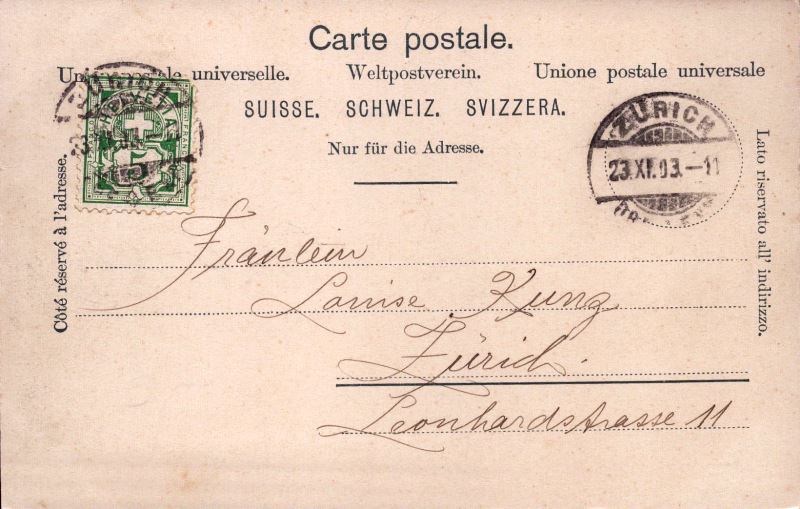 Carte postale.
Union postale universelle. Weltpostverein. Unione postale universale
SUISSE. SCHWEIZ. SVIZZERA.
Nur für die Adresse.
Côté réservé à l'adresse.
Lato riservato all' indirizzo.
ZÜRICH
23.XI.03.–11
ZÜRICH
HELVETIA
FRANCO
5
Fräulein
Louise Kunz
Zürich.
Leonhardstrasse 11